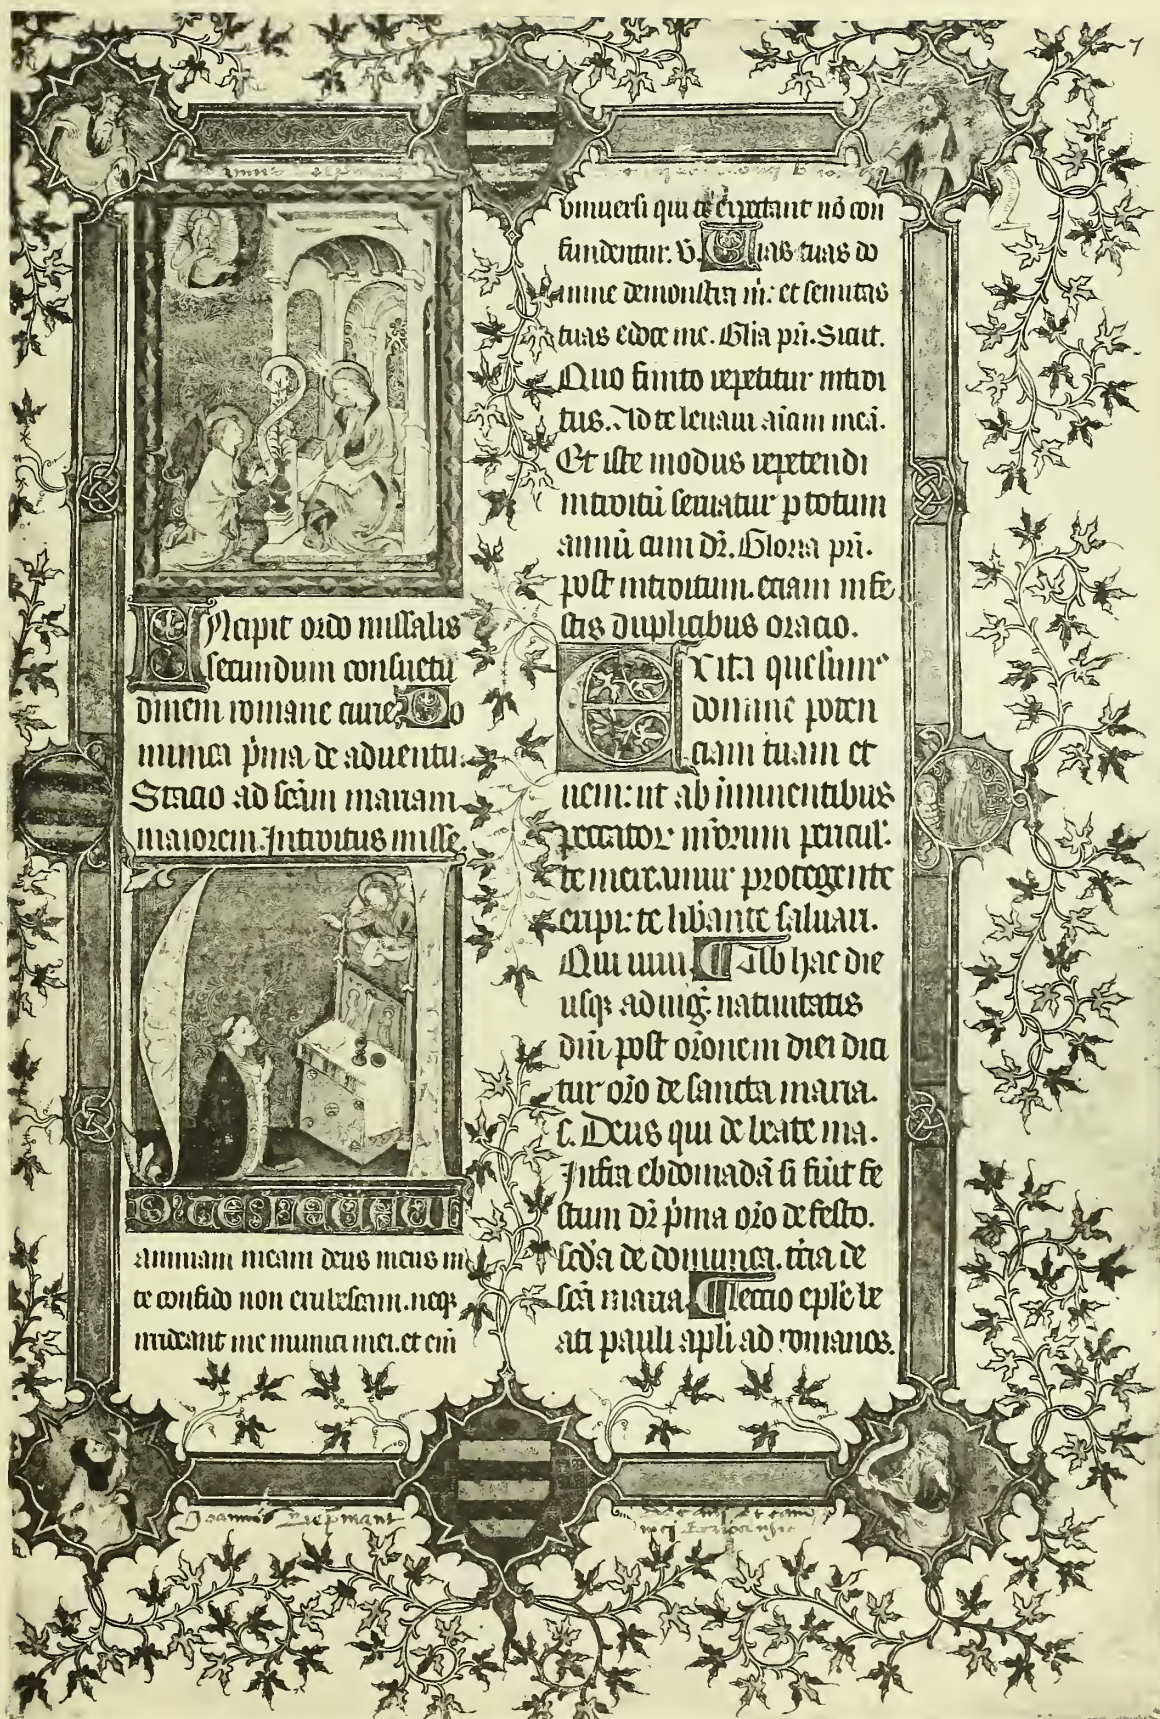 7
Incipit ordo missalis
secundum consuetu
dinem romane curie Do
minica p̄ma de aduentu.
Stacio ad sc̄am mariam
maiorem. Introitus misse.
AD TE LEUAUI
animam meam deus meus in
te confido non erubescam. neq̨
irrideant me inimici mei. et eni
vniuersi qui te expectant nō con
fundentur. V. Uias tuas do
mine demonstra m̄: et semitas
tuas edoce me. Glīa pr̄i. Sicut.
Quo finito repetitur introi
tus. Ad te leuaui aīam meā.
Et iste modus repetendi
introitū seruatur p totum
annū cum dr̄. Gloria pr̄i.
post introitum. etiam in fe
stis duplicibus oracio.
EXcita quesumꝰ
domine poten
ciam tuam et
ueni: ut ab iminentibus
peccatoꝝ nr̄orum pericul'
te mereamur protegente
eripi: te libāante saluari.
Qui uiuis ¶ Ab hac die
usq̨ ad uig. natiuitatis
dn̄i post oīonem diei dici
tur or̄o de sancta maria.
s. Deus qui de beate ma.
Infra ebdomadā si fūit fe
stum dr̄ p̄ma or̄o de festo.
sc̄da de dominica. t̄cia de
sc̄a maria ¶ Lectio epl̄e be
ati pauli apl̄i ad romanos.
Joannis Siepmans